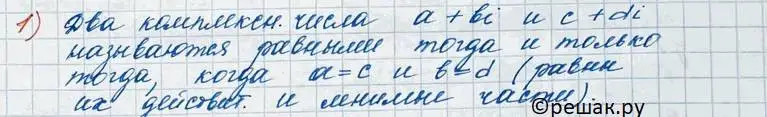 1) Два комплексн. числа a + bi и c + di
называются равными тогда и только
тогда, когда a = c и b = d (равны
их действит. и мнимые части).
©решак.ру